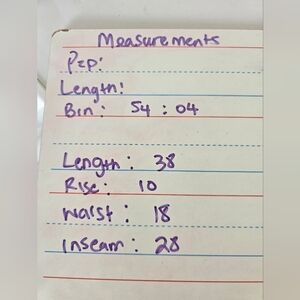 Measurements
P2P:
Length:
Bin: 54 : 04
Length: 38
Rise: 10
Waist: 18
Inseam: 28